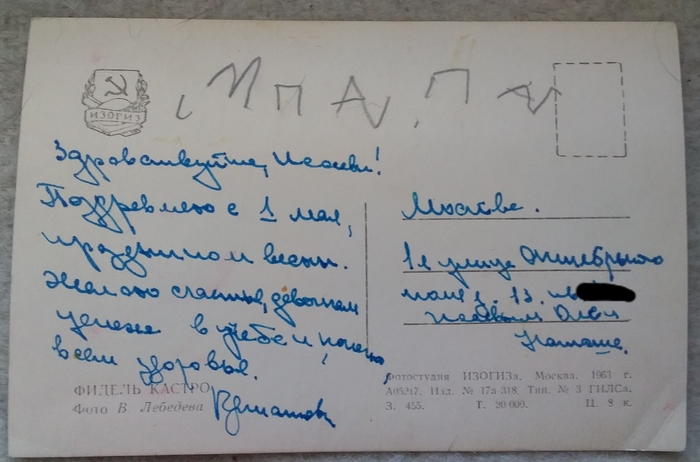 ИЗОГИЗ
Здравствуйте,
Поздравляю с 1 мая,
праздником весны.
Желаю счастья, девочкам
успеха в учебе и, конечно,
всем здоровья.
Москва.
1я улица Октябрьского
поля д. 13. кв
Наташе.
ФИДЕЛЬ КАСТРО
Фото В. Лебедева
Фотостудия ИЗОГИЗа. Москва. 1963 г.
А05247. Изд. № 17а-318. Тип. № 3 ГИЛСа.
З. 455. Т. 20 000. Ц. 8 к.